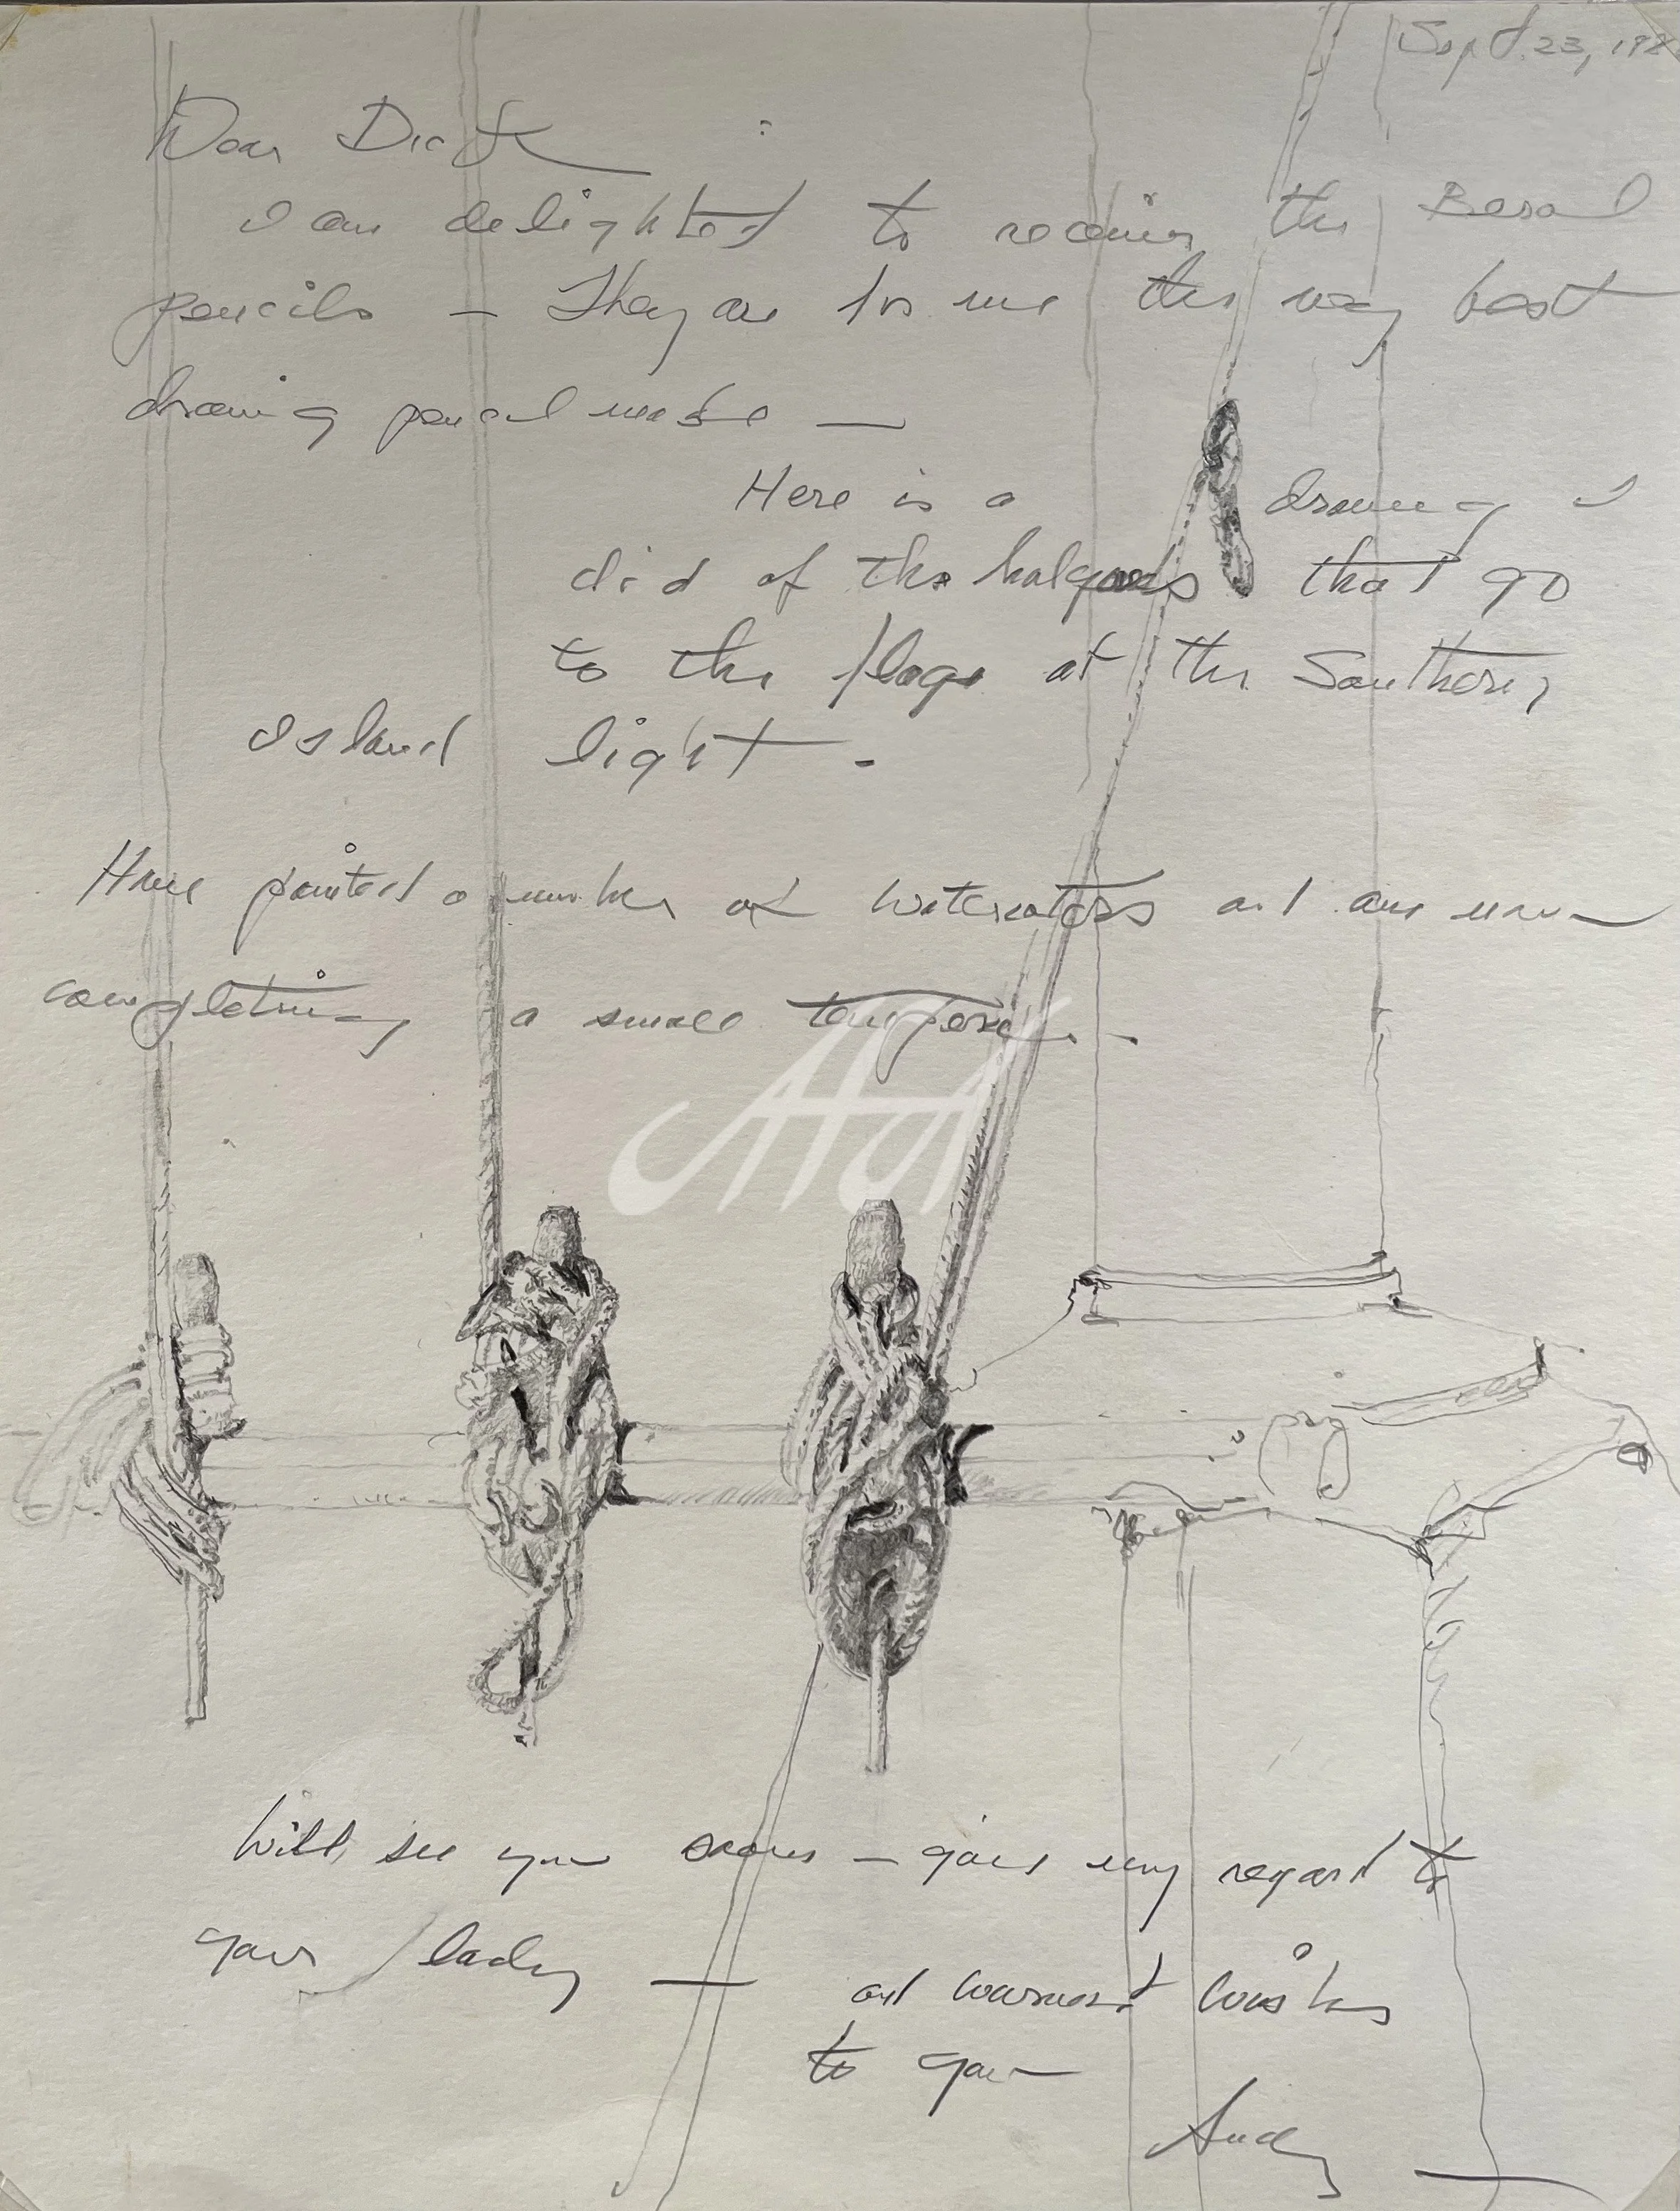 Sept. 23, 198
Dear Dick
I am delighted to receive the Berol
pencils — They are for me the very best
drawing pencil made —
Here is a drawing I
did of the halyards that go
to the flags at the Southern
Island light -
Have painted a number of watercolors and am now
completing a small tempera -
Will see you soon — give my regard to
your lady —
and warmest wishes
to you —
Andy —